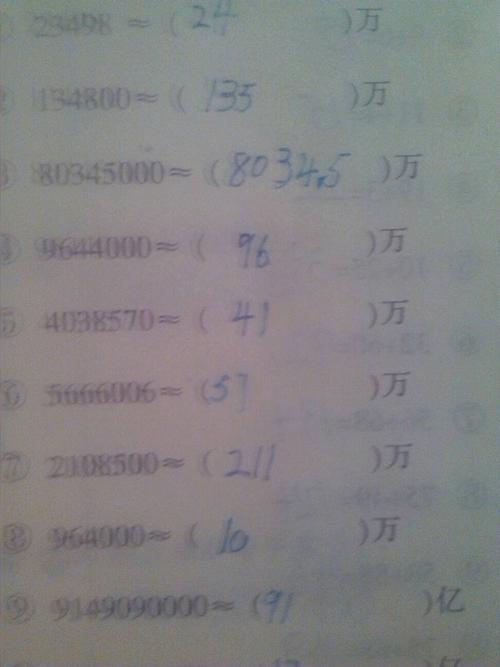 ① 23498 ≈ ( 24 )万
② 134800≈ ( 135 )万
③ 80345000≈ (8034.5 )万
④ 9644000≈ ( 96 )万
⑤ 4038570≈ ( 41 )万
⑥ 5666006≈ (57 )万
⑦ 2108500≈ ( 211 )万
⑧ 964000≈ ( 10 )万
⑨ 9149090000≈ (91 )亿